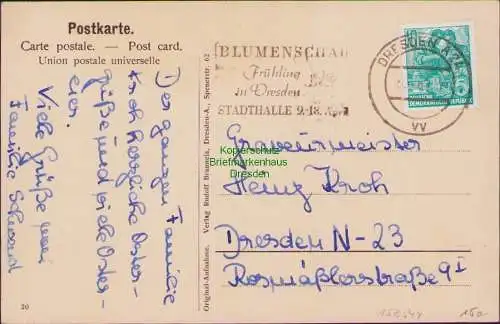 Postkarte.
Carte postale. — Post card.
Union postale universelle
Der ganzen Familie
Kroh herzliche Oster-
grüße und viele Oster-
eier.
Viele Grüße von
Familie
20
Original-Aufnahme. Verlag Rudolf Brauneis, Dresden-A., Spenerstr. 62
BLUMENSCHAU
Frühling
in Dresden
STADTHALLE 9.-18. Apr
DRESDEN
vv
10
DEUTSCHE
DEMOKRATISCHE REPUBLIK
Graveurmeister
Heinz Kroh
Dresden N-23
Rosmäßlerstraße 9 I
Kopierschutz
Briefmarkenhaus
Dresden
150